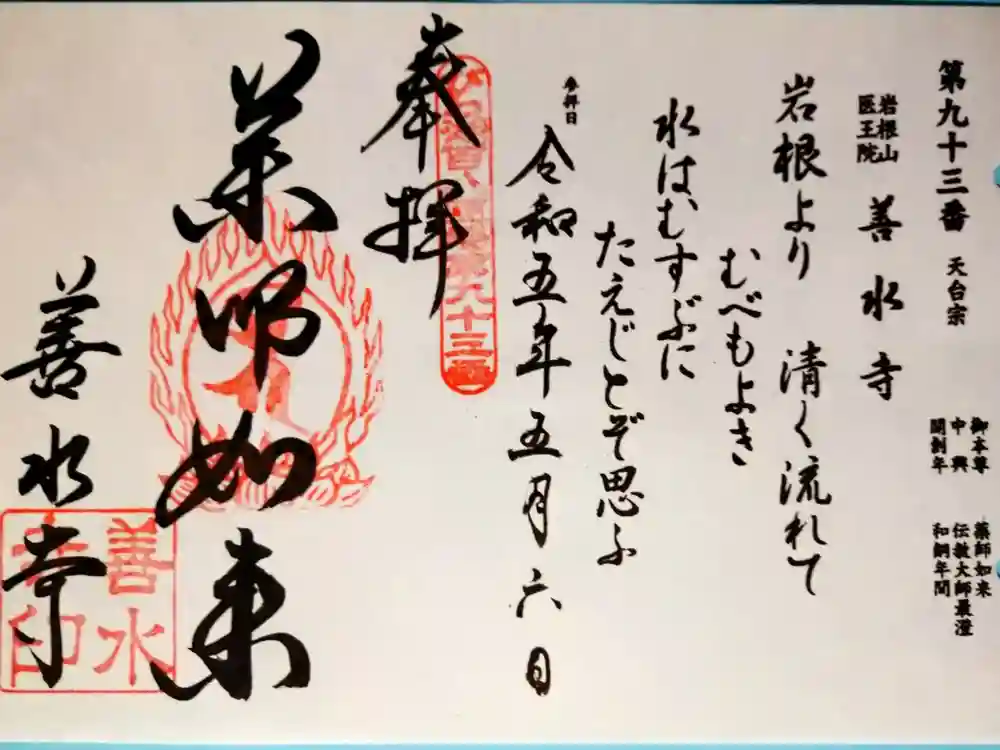 第九十三番 天台宗
御本尊 薬師如来
中興 伝教大師最澄
開創年 和銅年間
岩根山
医王院
善水寺
岩根より 清く流れて
むべもよき
水はむすぶに
たえじとぞ思ふ
参拝日
令和五年五月六日
奉拝
第九十三番
薬師如来
善水寺
善水
寺印